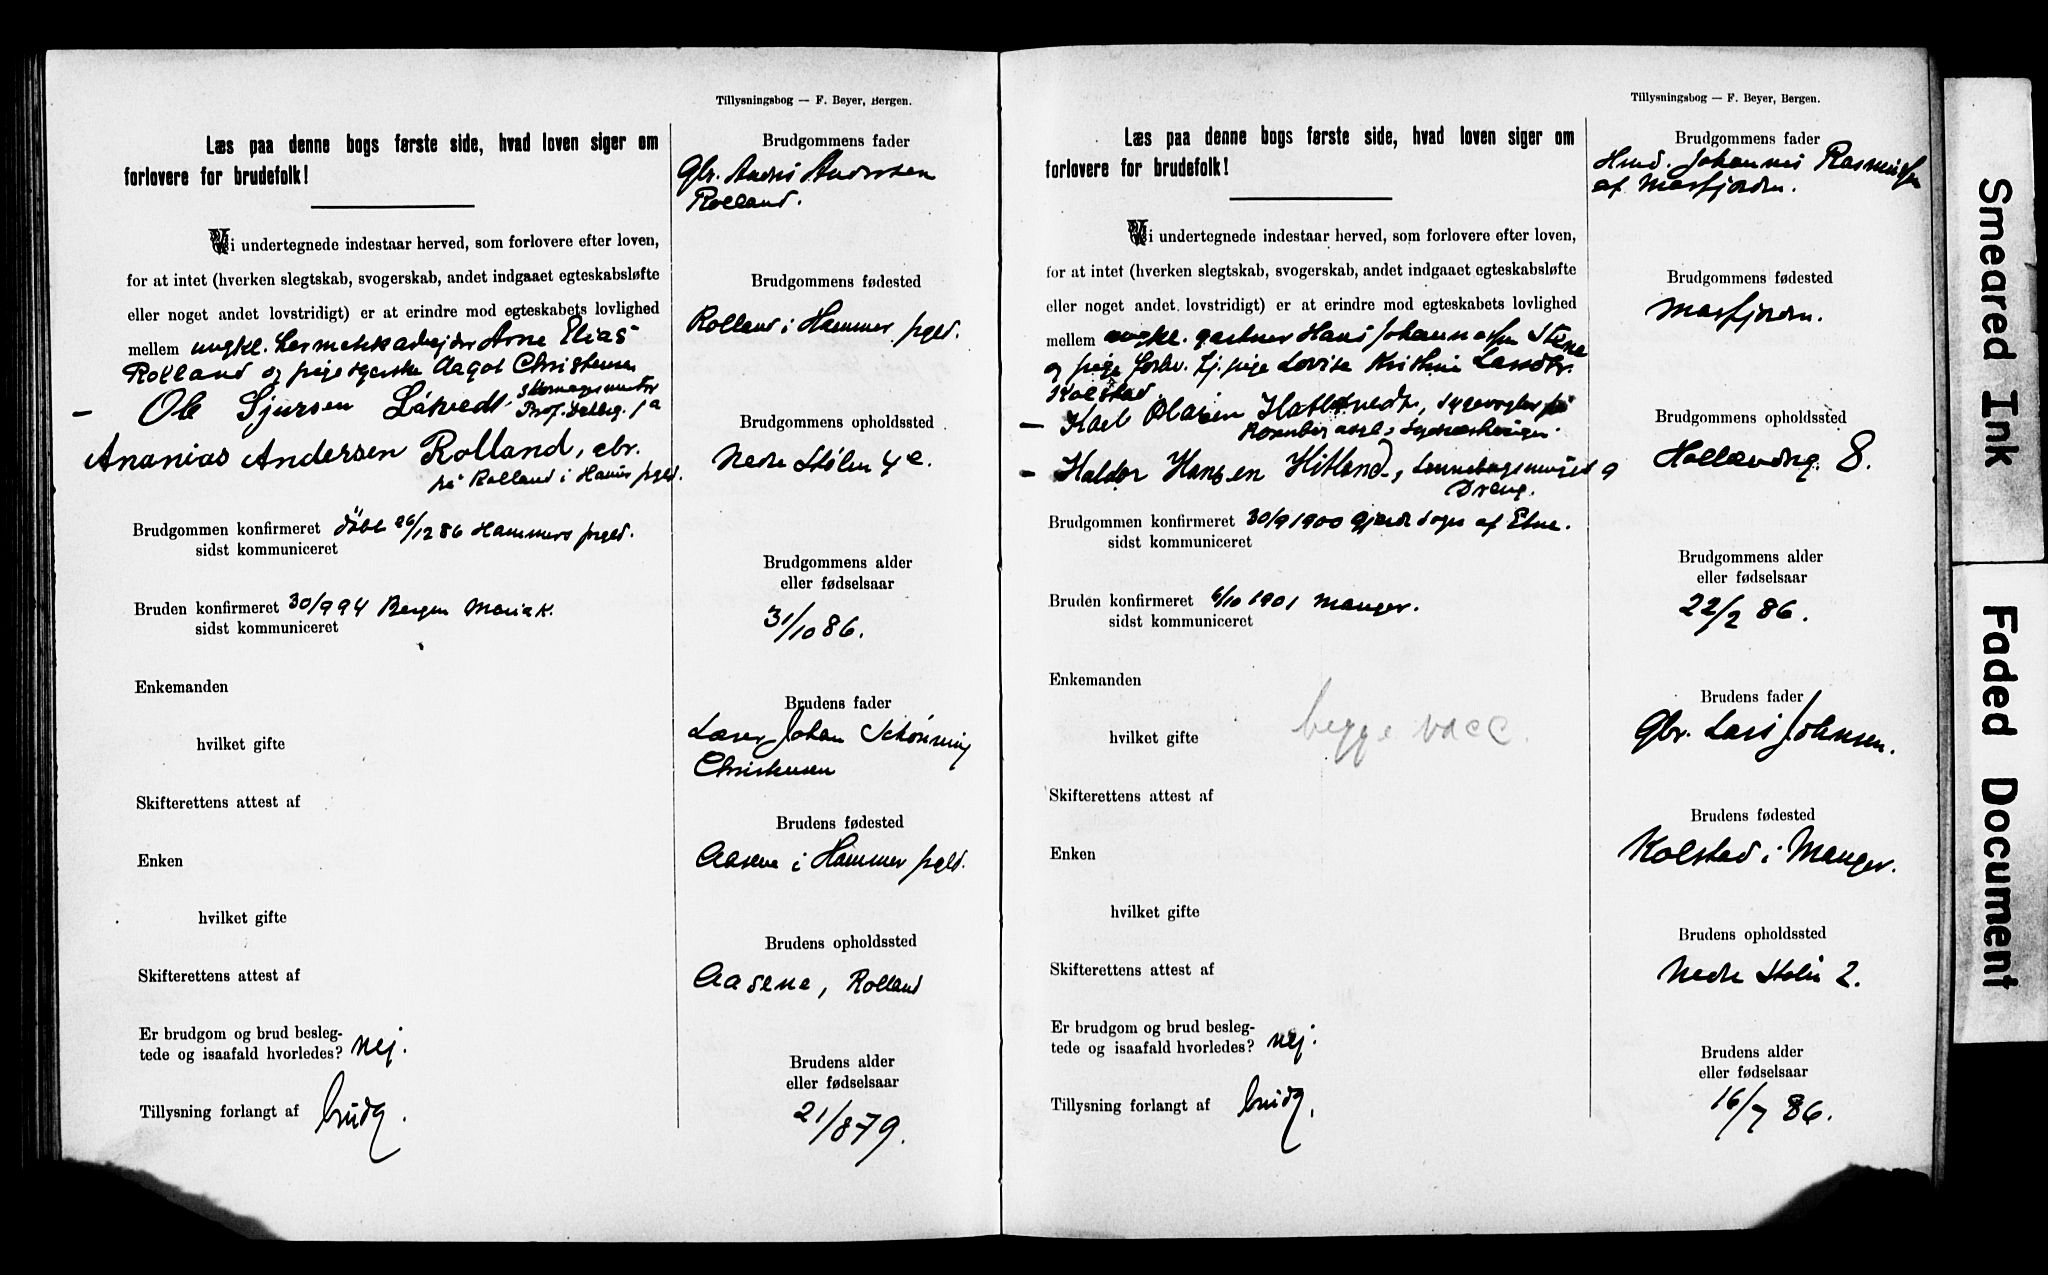 Tillysningsbog — F. Beyer, Bergen.
Læs paa denne bogs første side, hvad loven siger om
forlovere for brudefolk!
Vi undertegnede indestaar herved, som forlovere efter loven,
for at intet (hverken slegtskab, svogerskab, andet indgaaet egteskabsløfte
eller noget andet lovstridigt) er at erindre mod egteskabets lovlighed
mellem ungkl. hermetikkarbejder Arne Elias
Rolland og pige syerske Aagot Christensen
— Ole Sjursen Låstvedt
Ananias Andersen Rolland, gbr.
på Rolland i Hamre prgld.
Brudgommen konfirmeret døbt 26/12 86 Hammers prgld.
sidst kommuniceret
Bruden konfirmeret 30/9 94 Bergen Maria k.
sidst kommuniceret
Enkemanden
hvilket gifte
Skifterettens attest af
Enken
hvilket gifte
Skifterettens attest af
Er brudgom og brud besleg-
tede og isaafald hvorledes? nej.
Tillysning forlangt af brudg.
Brudgommens fader
Gbr. Anders Andersen
Rolland.
Brudgommens fødested
Rolland i Hammer prgld.
Brudgommens opholdssted
Nedre Stølen 4 e.
Brudgommens alder
eller fødselsaar
31/10 86.
Brudens fader
Lærer Johan Schönning
Christensen
Brudens fødested
Aasene i Hammer prgld.
Brudens opholdssted
Aasene, Rolland
Brudens alder
eller fødselsaar
21/8 79.
Tillysningsbog — F. Beyer, Bergen.
Læs paa denne bogs første side, hvad loven siger om
forlovere for brudefolk!
Vi undertegnede indestaar herved, som forlovere efter loven,
for at intet (hverken slegtskab, svogerskab, andet indgaaet egteskabsløfte
eller noget andet lovstridigt) er at erindre mod egteskabets lovlighed
mellem ungkl. gartner Hans Johannessen Stene
og pige forhv. tj.pige Lovise Kristine Landbr.
Kolstad
— Karl Olasen Hatlevedt, sygevogter på
— Haldor Hansen Hitland,
Brudgommen konfirmeret 30/9 1900 Gjerde sogn af Etne.
sidst kommuniceret
Bruden konfirmeret 6/10 1901 Manger.
sidst kommuniceret
Enkemanden
hvilket gifte
begge vacc.
Skifterettens attest af
Enken
hvilket gifte
Skifterettens attest af
Er brudgom og brud besleg-
tede og isaafald hvorledes? nej.
Tillysning forlangt af brudg.
Brudgommens fader
Hmd. Johannes Rasmussen
af Masfjorden.
Brudgommens fødested
Masfjorden.
Brudgommens opholdssted
Hollændrg. 8.
Brudgommens alder
eller fødselsaar
22/2 86.
Brudens fader
Gbr. Lars Johansen.
Brudens fødested
Kolstad i Manger.
Brudens opholdssted
Nedre Stølen 2.
Brudens alder
eller fødselsaar
16/7 86.
Smeared Ink
Faded Document